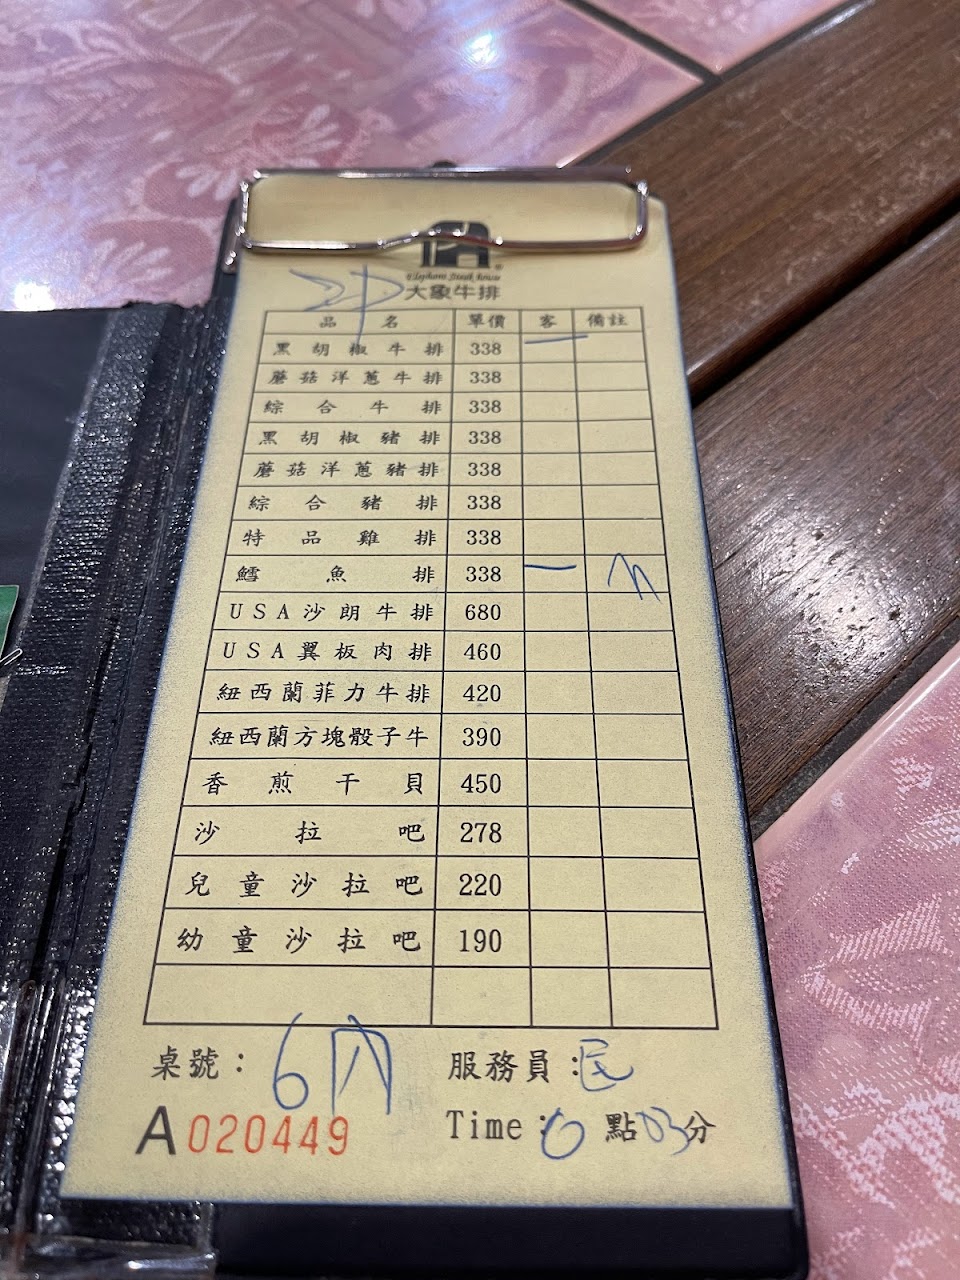 Elephant Steak house
大象牛排
品名 單價 客 備註
黑胡椒牛排 338 一
蘑菇洋蔥牛排 338
綜合牛排 338
黑胡椒豬排 338
蘑菇洋蔥豬排 338
綜合豬排 338
特品雞排 338
鱈魚排 338 一
USA沙朗牛排 680
USA翼板肉排 460
紐西蘭菲力牛排 420
紐西蘭方塊骰子牛 390
香煎干貝 450
沙拉吧 278
兒童沙拉吧 220
幼童沙拉吧 190
桌號：6內 服務員：民
A020449 Time：6點03分